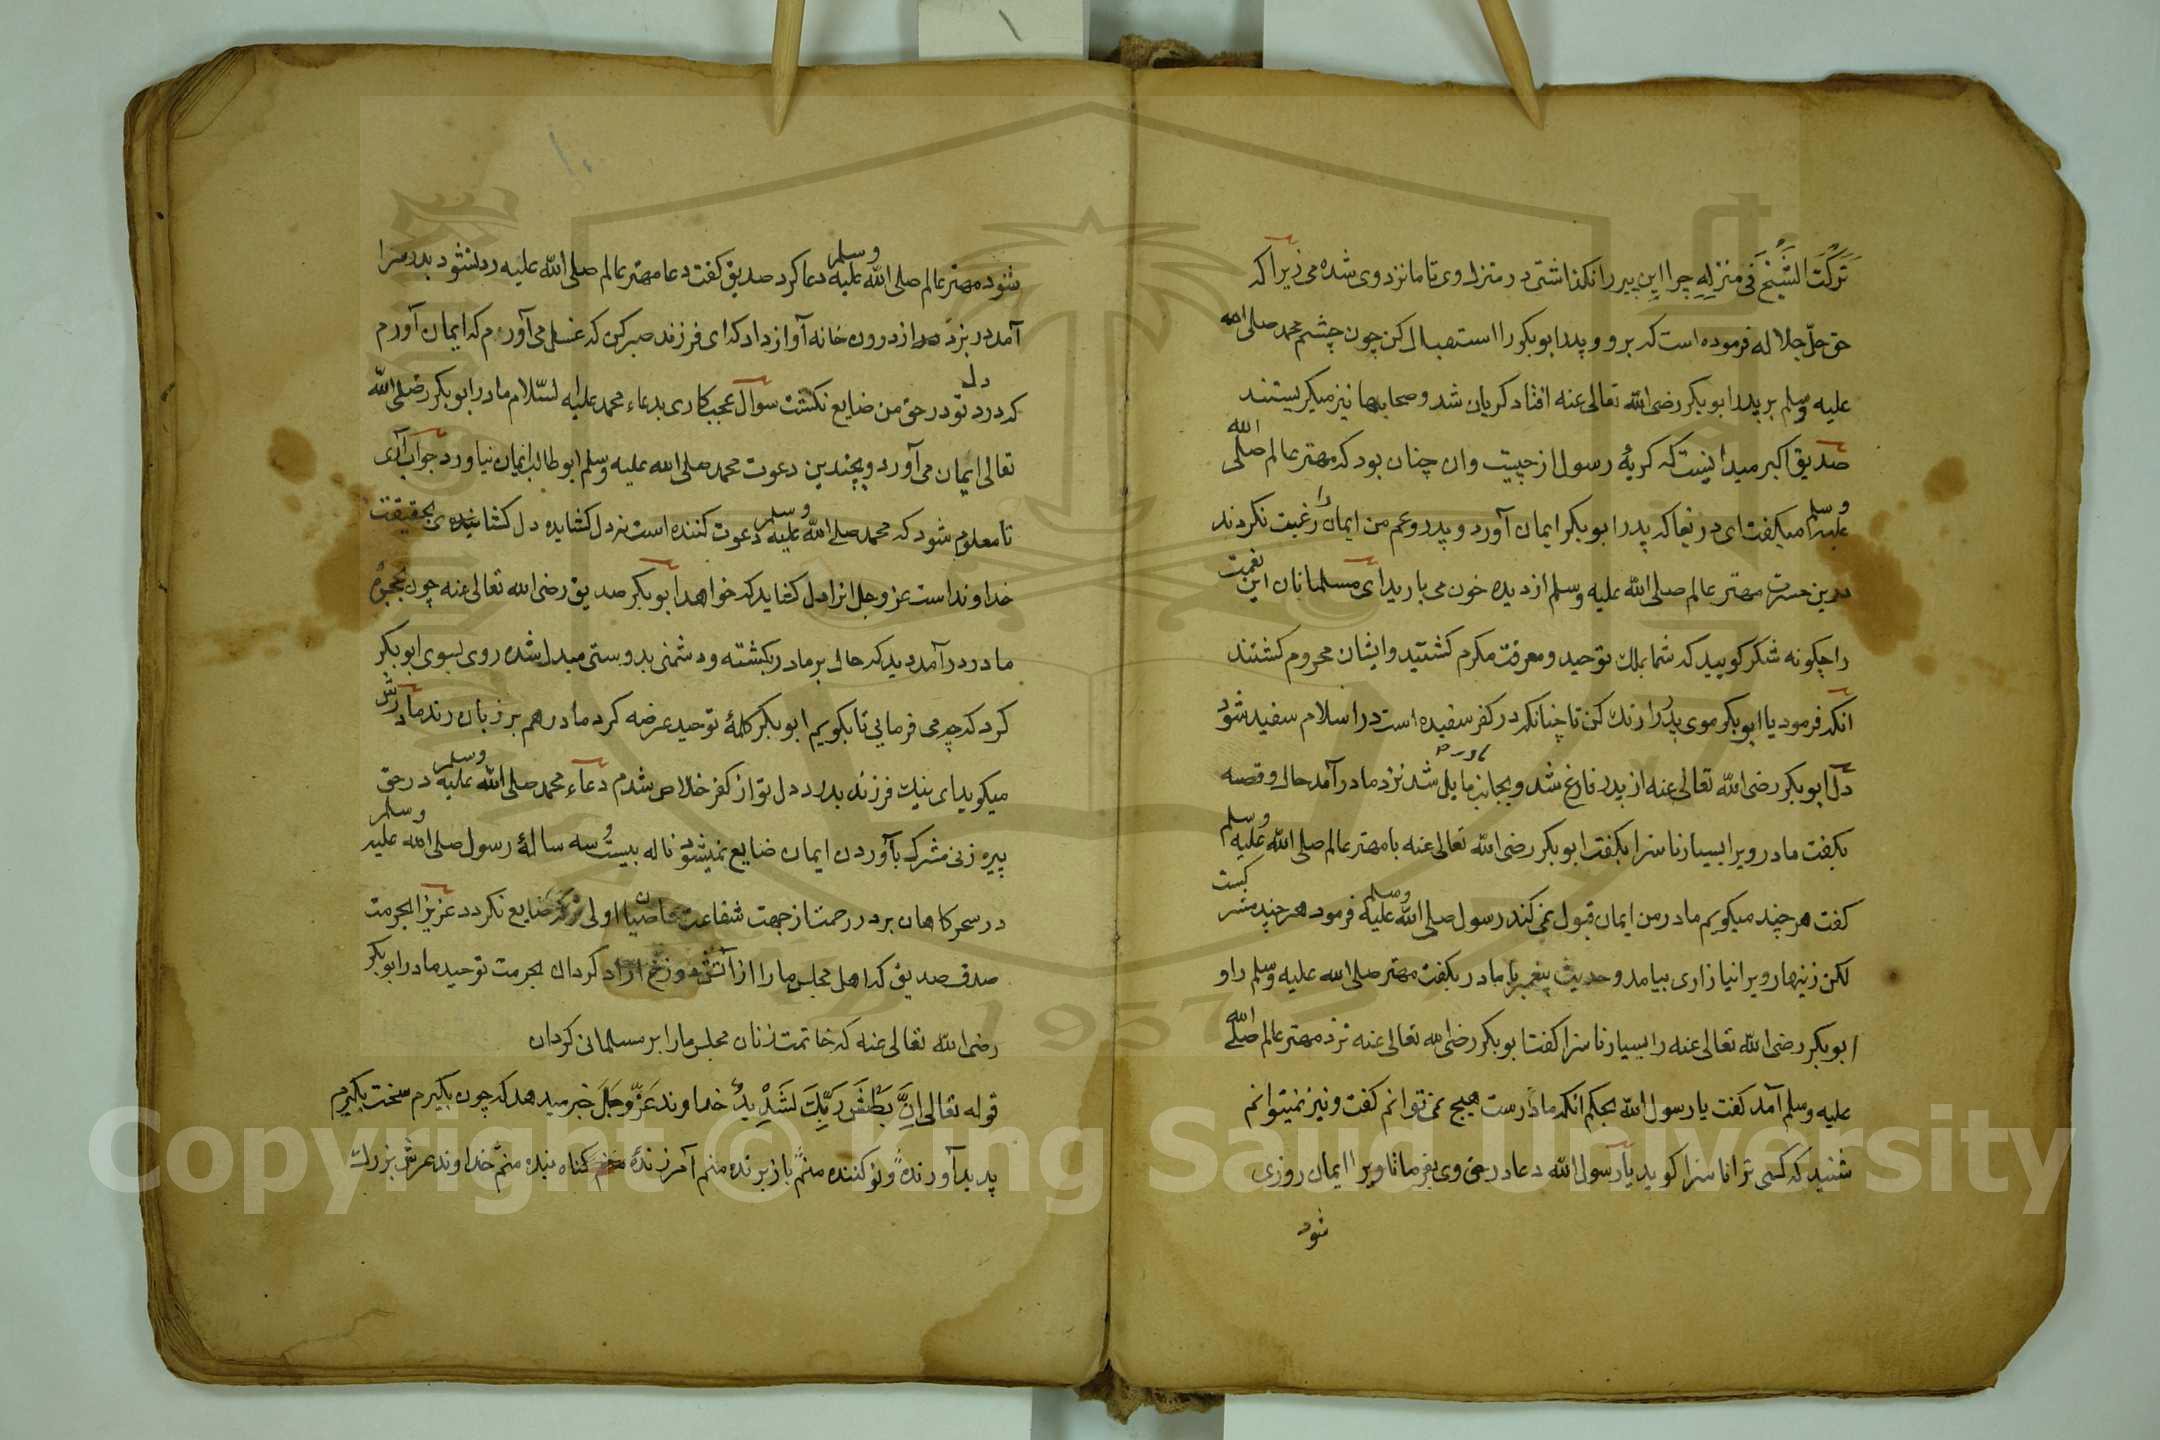 تَرَكْتَ الشَّيْخَ فِي مَنْزِلِهِ چرا این پیر را نکذاشتی در منزل وی تا ما نزد وی شده می زیرا که
حق جلّ جلاله فرموده است که برو و پدر ابوبکر را استقبال کن چون چشم محمد صلی الله
علیه وسلم بر پدر ابوبکر رضی الله تعالی عنه افتاد کریان شد و صحابها نیز میکریستند
صدیق اکبر میدانیست که کریهٔ رسول از چیست وان چنان بود که مهتر عالم صلی الله
علیه وسلم میکفت ای دریغا که پدر ابوبکر ایمان آورد و پدر و عم من ایمان را رغبت نکردند
درین حسرت مهتر عالم صلی الله علیه وسلم از دیده خون می بارید ای مسلمانان این نعمت
را چکونه شکر کویید که شما بملک توحید و معرفت مکرم کشتید و ایشان محروم کشتند
انکه فرمود یا ابوبکر موی پدر را رنک کن تا چنانکه در کفر سفیده است در اسلام سفید شود
دل ابوبکر رضی الله تعالی عنه از پدر فارغ شد و بجانب مادر مایل شد نزد مادر آمد حال و قصه
بکفت مادر ویرا بسیار ناسزا بکفت ابوبکر رضی الله تعالی عنه با مهتر عالم صلی الله علیه وسلم
کفت هر چند میکویم مادر من ایمان قبول نمی کند رسول صلی الله علیه وسلم فرمود هر چند مشرکست
لکن زینهار ویرا نیازاری بیامد و حدیث پیغمبر با مادر بکفت مهتر صلی الله علیه وسلم را و
ابوبکر رضی الله تعالی عنه را بسیار ناسزا کفت ابوبکر رضی الله تعالی عنه نزد مهتر عالم صلی الله
علیه وسلم آمد کفت یا رسول الله بحکم انکه مادرست هیچ نمی توانم کفت و نیز نمیتوانم
شنید که کسی ترا ناسزا کوید یا رسول الله دعا در حق وی بفرما تا ویرا ایمان روزی
شود
شود مهتر عالم صلی الله علیه وسلم دعا کرد صدیق کفت دعا مهتر عالم صلی الله علیه رد نشود بدر سرا
آمد در بزد مادر از درون خانه آواز داد که ای فرزند صبر کن که غسل می آورم که ایمان آورم
که درد دل تو در حق من ضایع نکشت سوال عجب کاری بدعاء محمد علیه السّلام مادر ابوبکر رضی الله
تعالی ایمان می آورد و بچندین دعوت محمد صلی الله علیه وسلم ابو طالب ایمان نیاورد جواب آری
تا معلوم شود که محمد صلی الله علیه وسلم دعوت کننده است نه دل کشاینده دل کشاینده بحقیقت
خداوند است عز وجل انرا دل کشاید که خواهد ابوبکر صدیق رضی الله تعالی عنه چون بحجرهٔ
مادر در آمد دید که حالی بر مادر بکشته و دشمنی بدوستی مبدل شده روی بسوی ابوبکر
کرد که چه می فرمایی تا بکویم ابوبکر کلمهٔ توحید عرضه کرد مادر هم بر زبان راند مادرش
میکوید ای نیک فرزند بدرد دل تو از کفر خلاص شدم دعاء محمد صلی الله علیه وسلم در حق
پیره زنی مشرک بآوردن ایمان ضایع نمیشود ناله بیست و سه سالهٔ رسول صلی الله علیه وسلم
در سحرکاهان بر در رحمت از جهت شفاعت عاصیان اولی ترکه ضایع نکردد عزیزا بحرمت
صدق صدیق که اهل مجلس ما را از آتش دوزخ آزاد کردان بحرمت توحید مادر ابوبکر
رضی الله تعالی عنه که خاتمت زنان مجلس ما را بر مسلمانی کردان
قوله تعالی اِنَّ بَطْشَ رَبِّكَ لَشَدِيْدٌ خداوند عَزَّ وجَلَّ خبر میدهد که چون بکیرم سخت بکیرم
پدید آورنده و نو کننده منم باز برنده منم آمرزندهٔ کناه بنده منم خداوند عرش بزرک